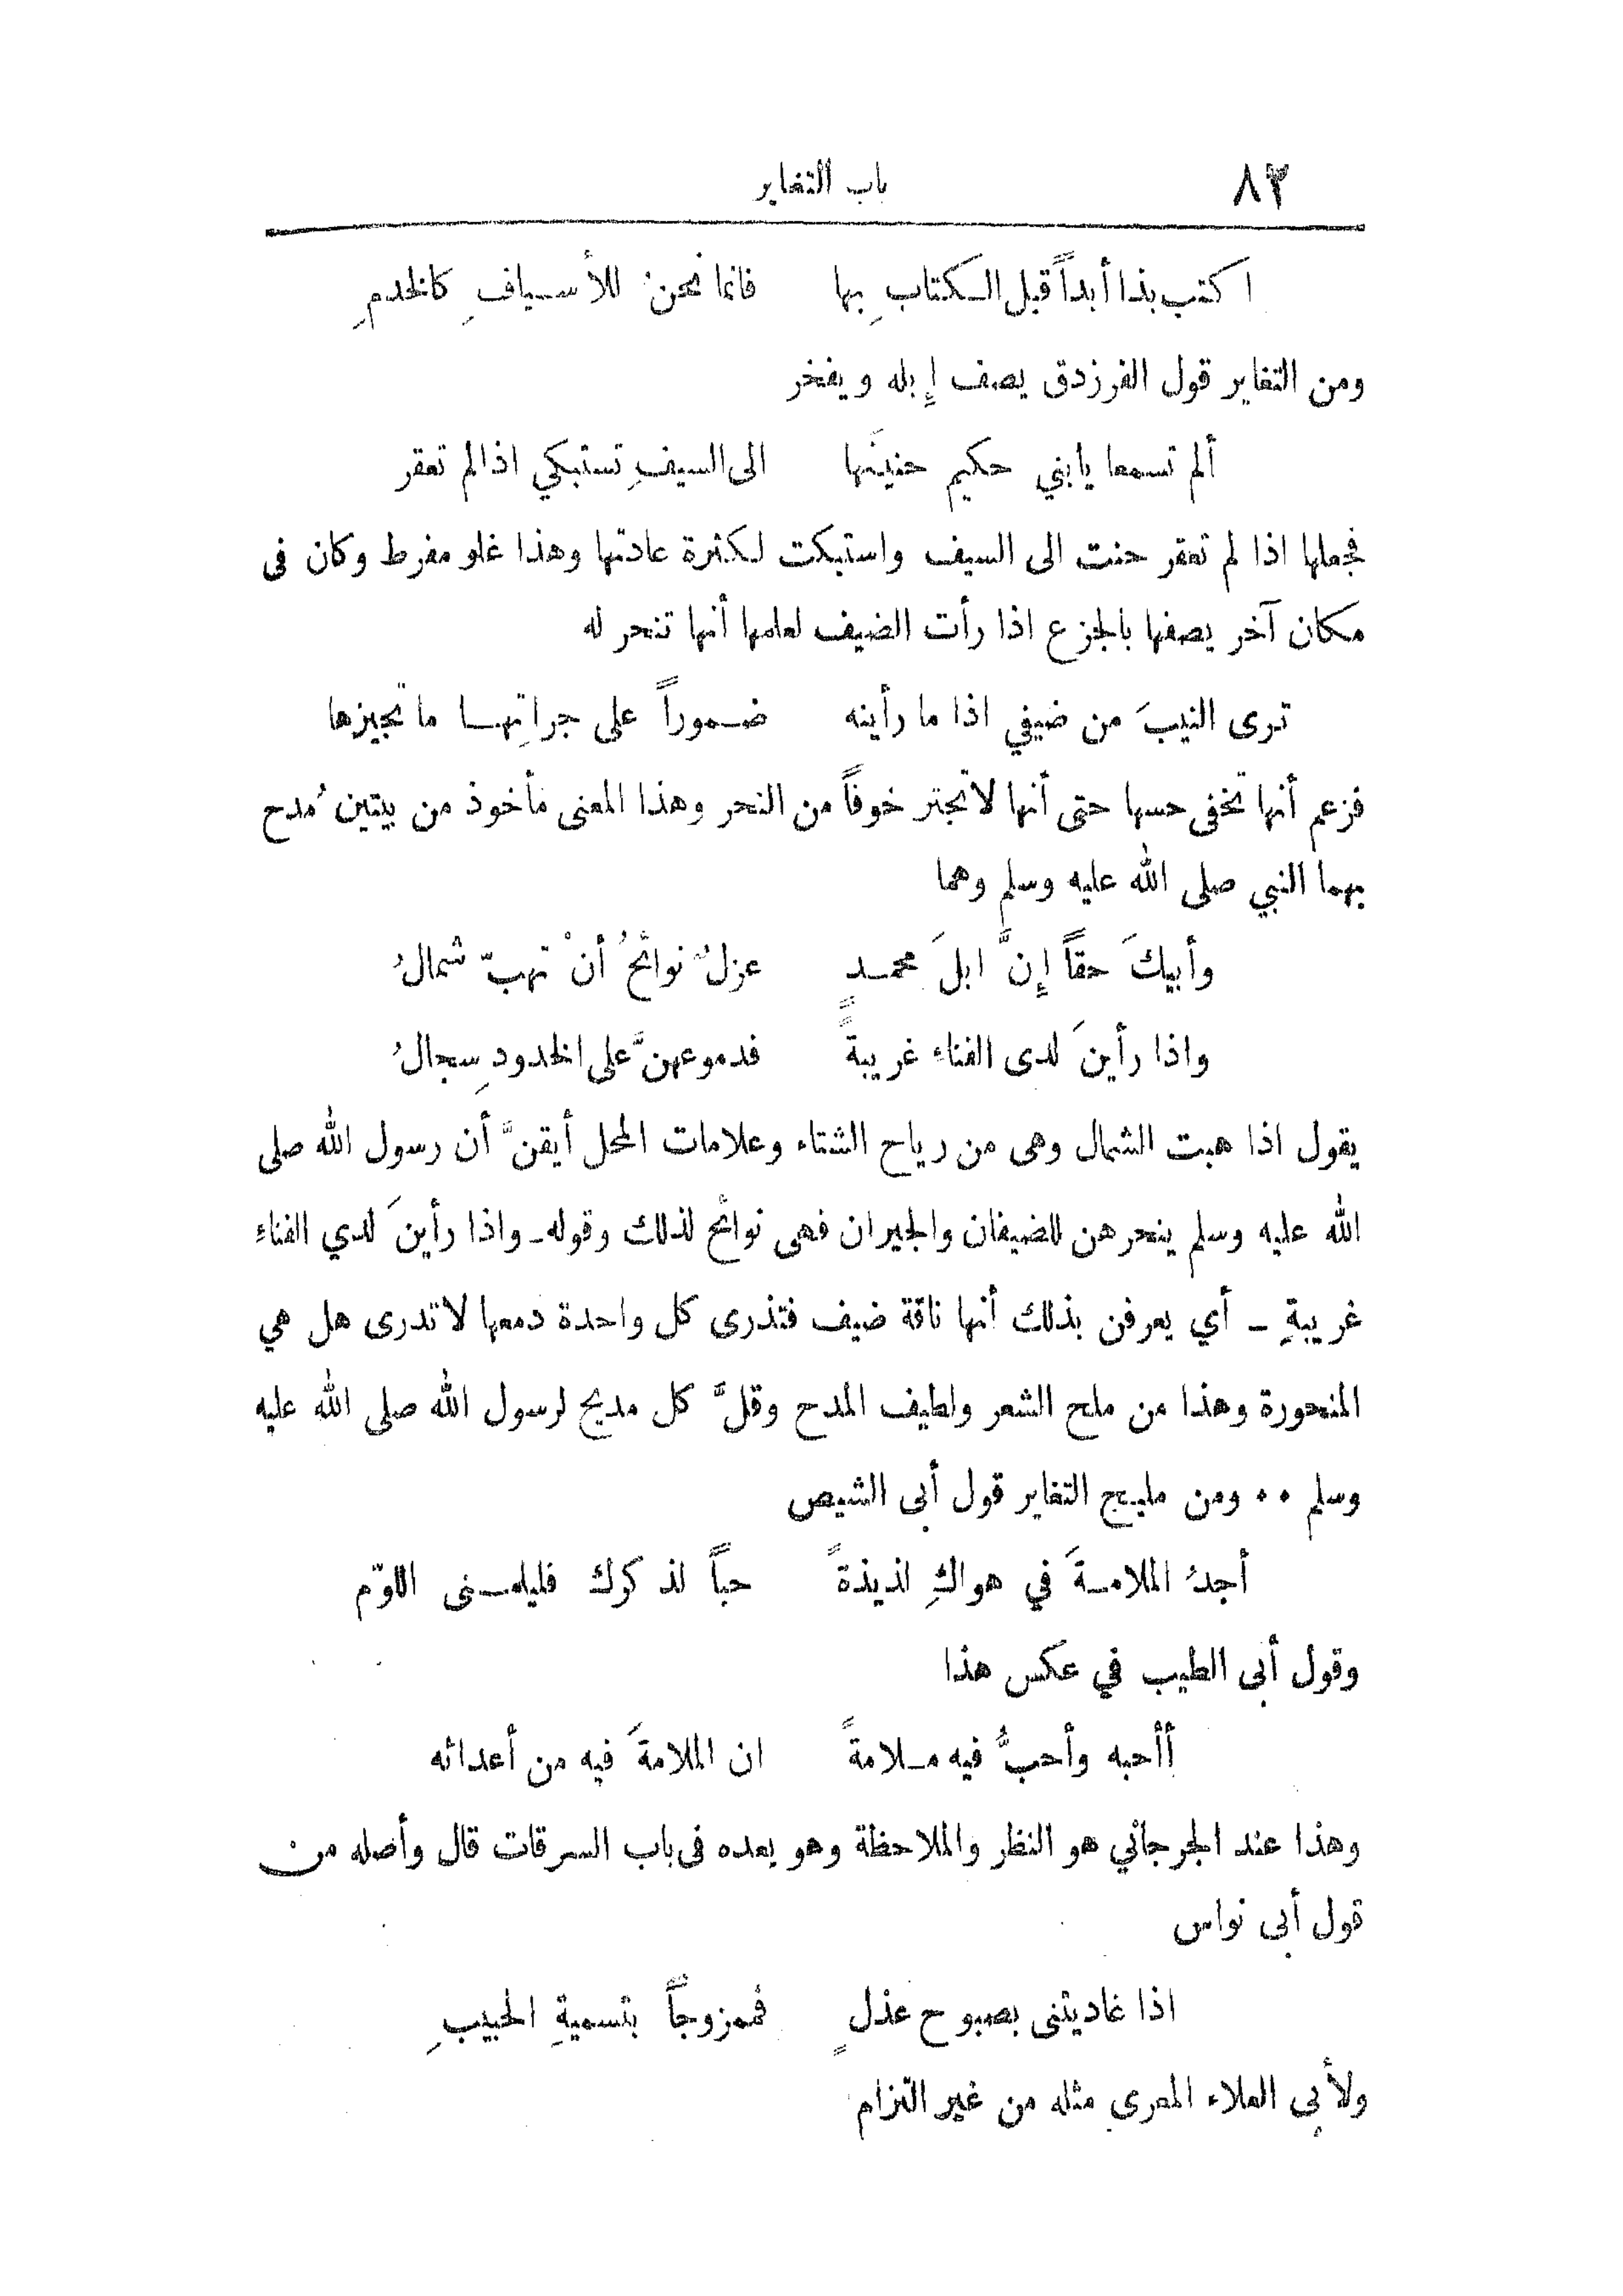 ٨٣ باب التغاير
اكتب بذا أبداً قبل الكتابِ بها فانما نحنُ للأسيافِ كالخدمِ
ومن التغاير قول الفرزدق يصف إبله ويفخر
ألم تسمعا يابني حكيم حنينَها الى السيفِ تستبكي اذا لم تعقر
فجعلها اذا لم تعقر حنت الى السيف واستبكت لكثرة عادتها وهذا غلو مفرط وكان فى
مكان آخر يصفها بالجزع اذا رأت الضيف لعلمها أنها تنحر له
ترى النيبَ من ضيفي اذا ما رأينه ضموراً على جراتِها ما تجيزها
فزعم أنها تخفى حسها حتى أنها لاتجتر خوفاً من النحر وهذا المعنى مأخوذ من بيتين مُدح
بهما النبي صلى الله عليه وسلم وهما
وأبيكَ حقاً إِنَّ ابلَ محمدٍ عزلٌ نوائحُ أنْ تهبّ شمالُ
واذا رأينَ لدى الفناءِ غريبةً فدموعهنَّ على الخدودِ سجالُ
يقول اذا هبت الشمال وهى من رياح الشتاء وعلامات المحل أيقنَّ أن رسول الله صلى
الله عليه وسلم ينحرهن للضيفان والجيران فهى نوائح لذلك وقوله ـ واذا رأينَ لدي الفناءِ
غريبةٍ ـ أي يعرفن بذلك أنها ناقة ضيف فتذرى كل واحدة دمعها لاتدرى هل هي
المنحورة وهذا من ملح الشعر ولطيف المدح وقلَّ كل مديح لرسول الله صلى الله عليه
وسلم ٠٠ ومن مليح التغاير قول أبى الشيص
أجدُ الملامةَ في هواكِ لذيذةً حباً لذكرك فليلمنى اللوّم
وقول أبى الطيب في عكس هذا
أأحبه وأحبُّ فيه ملامةً ان الملامةَ فيه من أعدائه
وهذا عند الجرجاني هو النظر والملاحظة وهو يعده فى باب السرقات قال وأصله من
قول أبى نواس
اذا غاديتنى بصبوح عذلٍ فممزوجاً بتسميةِ الحبيبِ
ولأبى العلاء المعري مثله من غير التزام